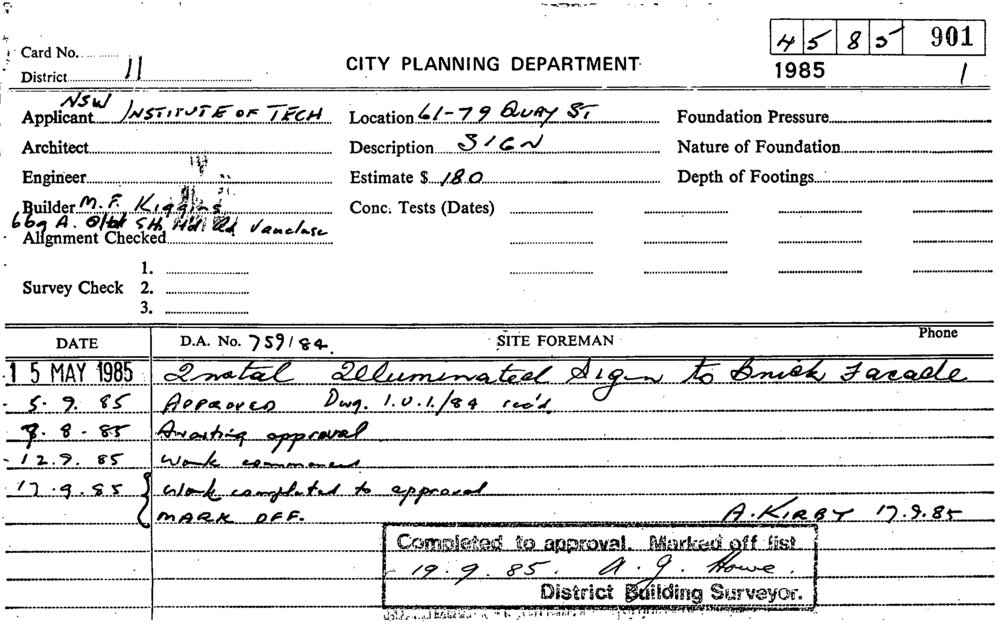 4 5 8 5 901
Card No.
1985 1
District 11
CITY PLANNING DEPARTMENT
NSW
Applicant INSTITUTE OF TECH
Location 61-79 QUAY ST
Foundation Pressure
Architect
Description SIGN
Nature of Foundation
Engineer
Estimate $ 180
Depth of Footings
Builder M. F. Kiggins
Conc. Tests (Dates)
669 A. Old Sth Hd Rd Vaucluse
Alignment Checked
1.
Survey Check 2.
3.
DATE D.A. No. 759/84 SITE FOREMAN Phone
15 MAY 1985 Instal Illuminated Sign to Brick Facade
5. 9. 85 APPROVED Dwg. 1.U.1/84 rec'd
9. 8. 85 Awaiting approval
12. 9. 85 Work commenced
17. 9. 85 Work completed to approval
MARK OFF. A. KIRBY 17.9.85
Completed to approval. Marked off list
19. 9. 85. A. J. Howe.
District Building Surveyor.